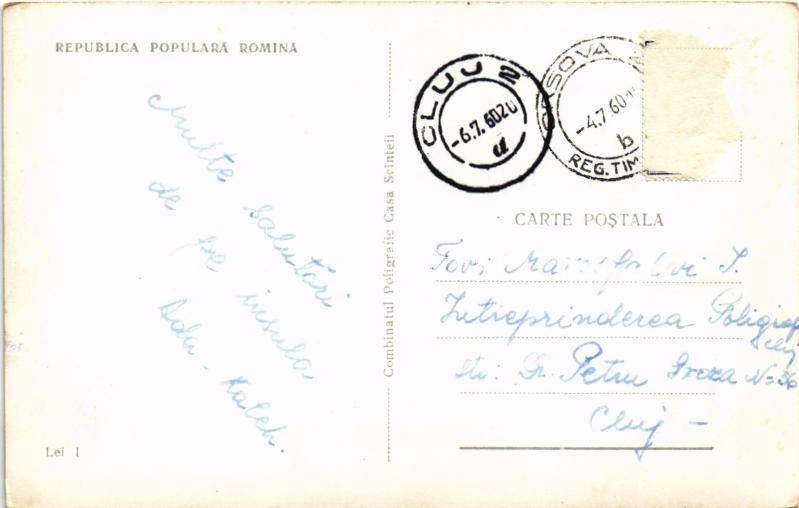 REPUBLICA POPULARĂ ROMINĂ
Multe
salutări
de pe insula
Ada-Kaleh.
Lei 1
Combinatul Poligrafic Casa Scînteii
CLUJ 2
-6.7.6020
d
ORSOVA
-4.7.60
b
REG.TIM
CARTE POŞTALĂ
Tov: I.
Intreprinderea Poligraf
Cluj
str: Dr. Petru Groza No 36
Cluj -